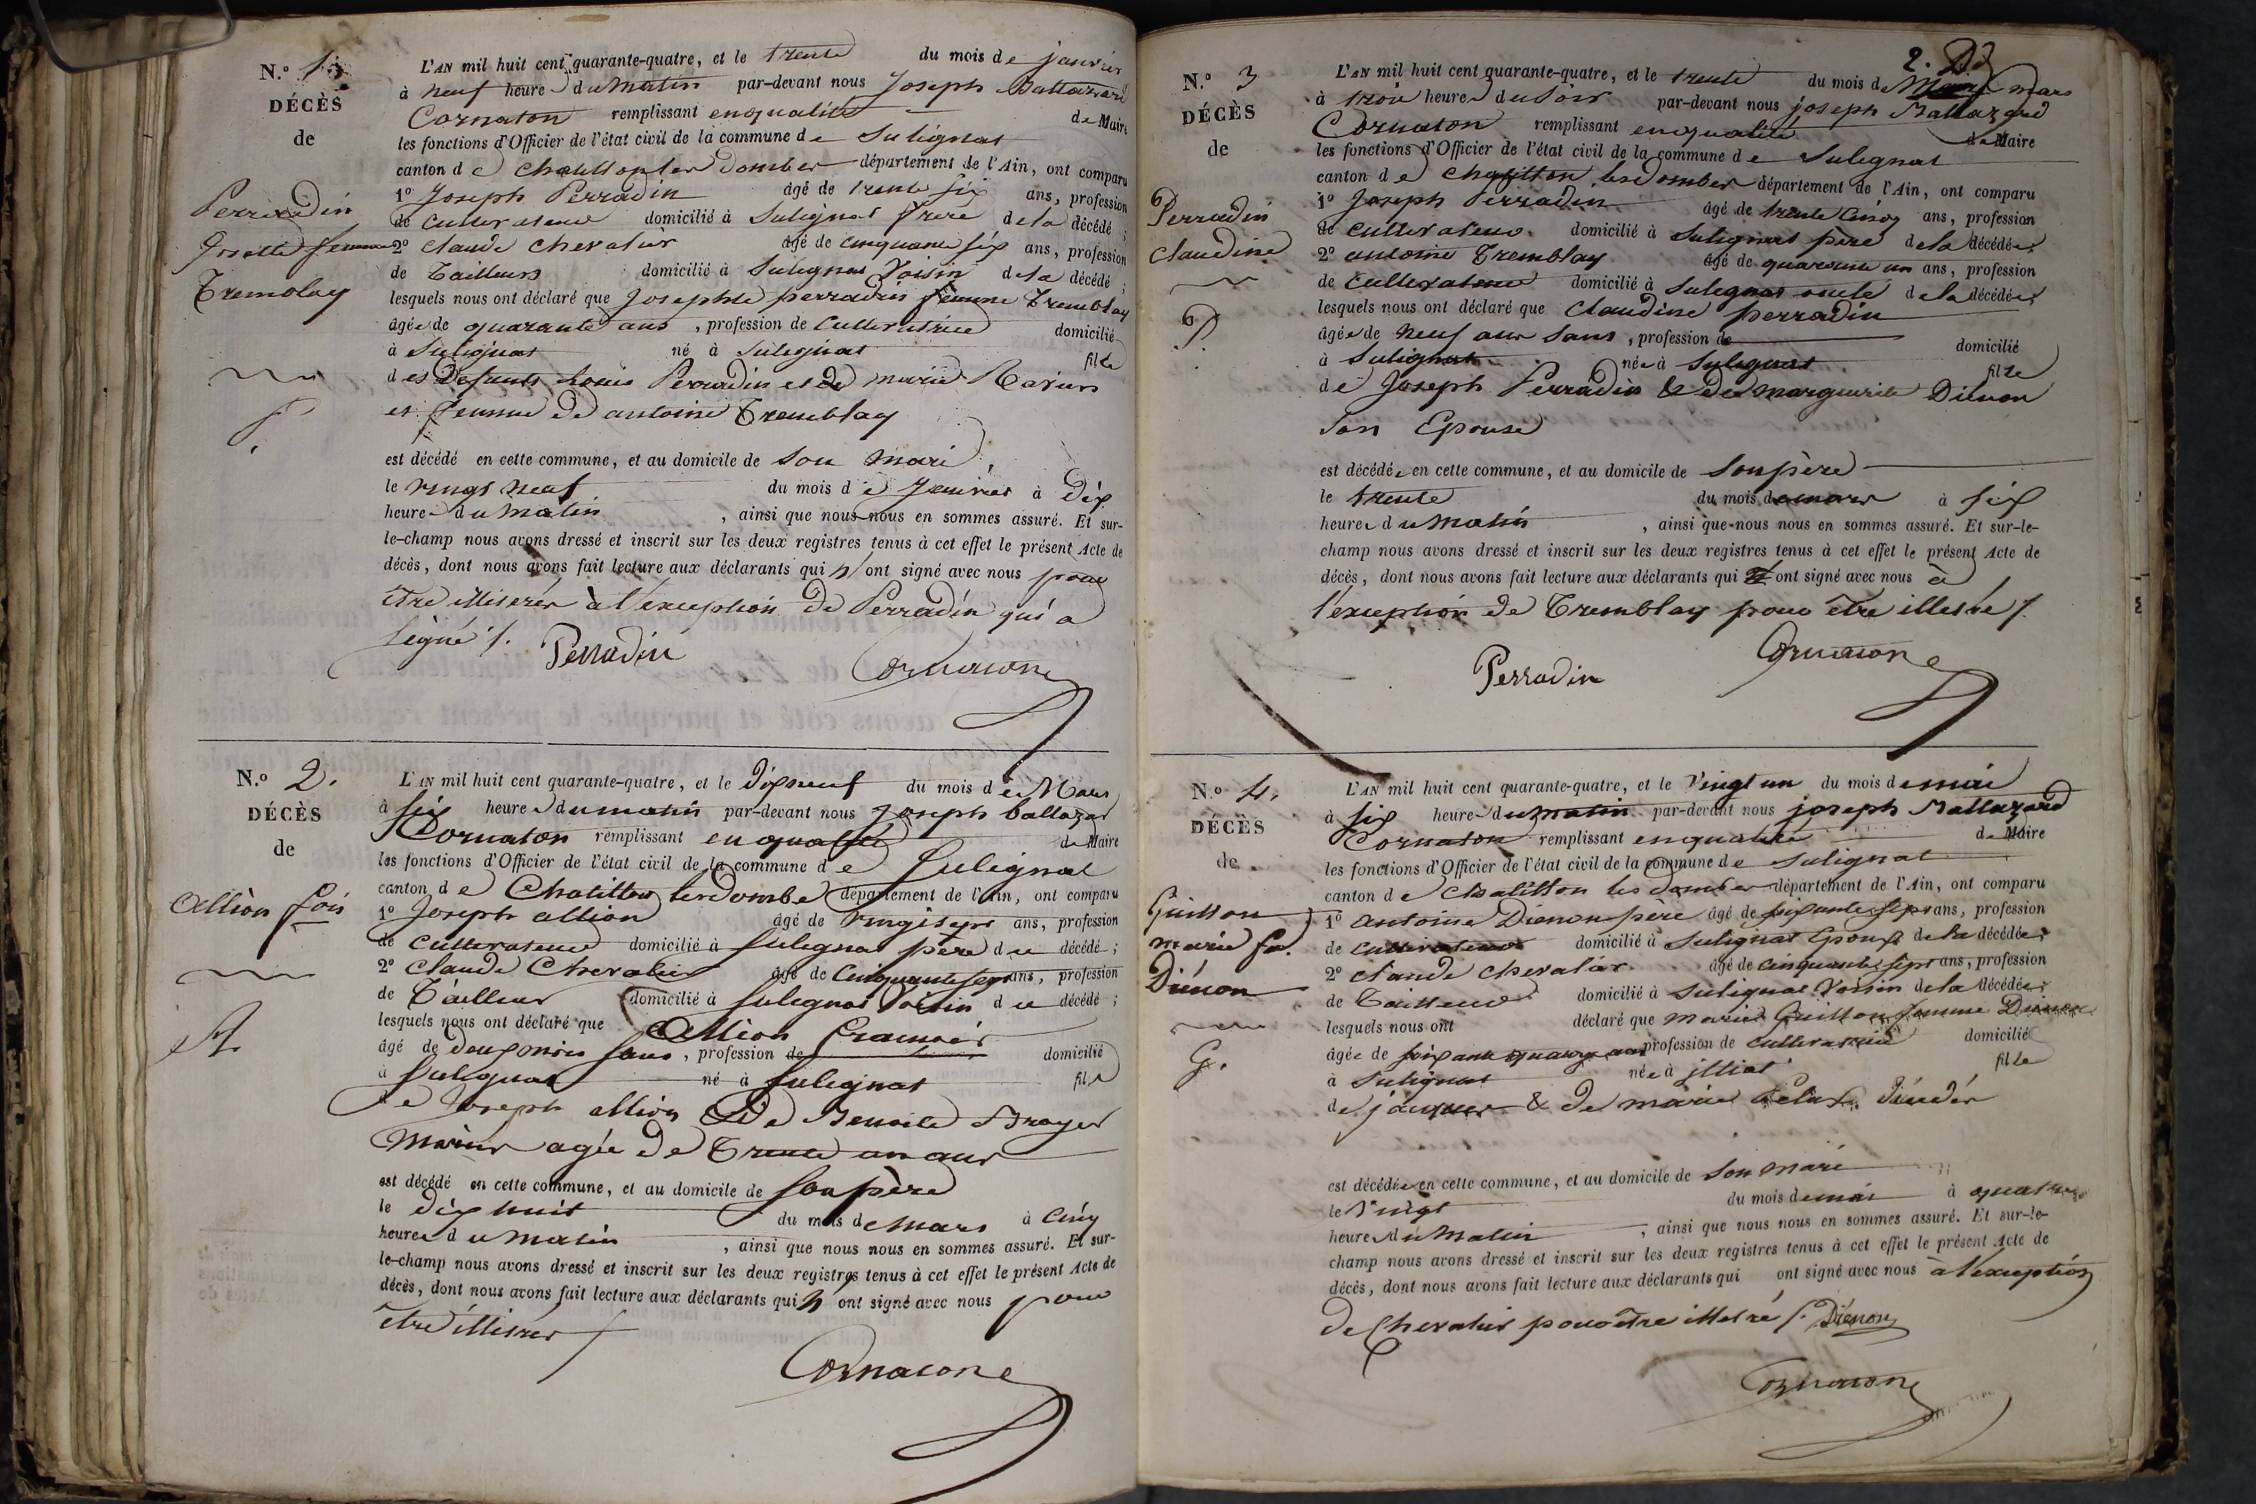 N.o 1.
DÉCÈS
de
Perradin
Josette femme
Tremblay
L'AN mil huit cent quarante-quatre, et le trente du mois de janvier
à neuf heure du matin par-devant nous Joseph Baltazard
Cornaton remplissant en qualité de Maire
les fonctions d'Officier de l'état civil de la commune de Sulignat
canton de Chatillon les Dombes département de l'Ain, ont comparu
1o Joseph Perradin âgé de trente six ans, profession
de cultivateur domicilié à Sulignat frère de la décédé ;
2o claude chevalier âgé de cinquante six ans, profession
de Tailleurs domicilié à Sulignat Voisin de la décédé ;
lesquels nous ont déclaré que Josephte perradin femme Tremblay
âgée de quarante ans , profession de Cultivatrice domicilié
à Sulignat né à Sulignat fille
des Defunts Louis Perradin et de marie
et femme de antoine Tremblay
est décédé en cette commune, et au domicile de son mari,
le vingt neuf du mois de Janvier à Dix
heure du matin , ainsi que nous nous en sommes assuré. Et sur-
le-champ nous avons dressé et inscrit sur les deux registres tenus à cet effet le présent Acte de
décès, dont nous avons fait lecture aux déclarants qui n'ont signé avec nous pour
être illiserés à l'exception de Perradin qui a
signé /. Perradin Cornaton
N.o 2.
DÉCÈS
de
Allion fois
A.
L'AN mil huit cent quarante-quatre, et le dix neuf du mois de Mars
à six heure du matin par-devant nous Joseph baltazar
Cornaton remplissant en qualité de Maire
les fonctions d'Officier de l'état civil de la commune de Sulignat
canton de Chatillon les Dombe département de l'Ain, ont comparu
1o Joseph allion âgé de vingt sept ans, profession
de cultivateur domicilié à Sulignat père du décédé ;
2o Claude Chevalier âgé de Cinquante sept ans, profession
de Tailleur domicilié à Sulignat Voisin du décédé ;
lesquels nous ont déclaré que Allion francois
âgé de deux mois sans , profession de domicilié
à Sulignat né à Sulignat fils
de Joseph allion & De Benoite Broyer
agée de Trente un ans
est décédé en cette commune, et au domicile de son père
le dix huit du mois de mars à cinq
heure du matin , ainsi que nous nous en sommes assuré. Et sur-
le-champ nous avons dressé et inscrit sur les deux registres tenus à cet effet le présent Acte de
décès, dont nous avons fait lecture aux déclarants qui n'ont signé avec nous pour
être illitrés /
Cornaton
2.
N.o 3
DÉCÈS
de
Perradin
claudine
P.
L'AN mil huit cent quarante-quatre, et le trente du mois de mars
à trois heure du soir par-devant nous joseph Baltazard
Cornaton remplissant en qualité de Maire
les fonctions d'Officier de l'état civil de la commune de Sulignat
canton de chatillon les Dombes département de l'Ain, ont comparu
1o Joseph Perradin âgé de trente cinq ans, profession
de cultivateur domicilié à Sulignat père de la décédée;
2o antoine Tremblay âgé de quarante un ans, profession
de cultivateur domicilié à Sulignat oncle de la décédée;
lesquels nous ont déclaré que Claudine perradin
âgée de neuf ans sans , profession de domicilié
à Sulignat née à Sulignat fille
de Joseph Perradin & De marguerite Diénon
son Epouse
est décédée en cette commune, et au domicile de son père
le trente du mois de mars à six
heure du matin , ainsi que nous nous en sommes assuré. Et sur-le-
champ nous avons dressé et inscrit sur les deux registres tenus à cet effet le présent Acte de
décès, dont nous avons fait lecture aux déclarants qui ont signé avec nous à
l'exception de Tremblay pour être illetré /.
Perradin Cornaton
N.o 4.
DÉCÈS
de
Guillon
marie fe.
Diénon
G.
L'AN mil huit cent quarante-quatre, et le vingt un du mois de mai
à six heure du matin par-devant nous joseph Baltazard
Cornaton remplissant en qualité de Maire
les fonctions d'Officier de l'état civil de la commune de Sulignat
canton de Chatillon les Dombes département de l'Ain, ont comparu
1o antoine Diénon père âgé de soixante sept ans, profession
de cultivateur domicilié à Sulignat Epoux de la décédée;
2o claude chevalier âgé de cinquante sept ans, profession
de Tailleur domicilié à Sulignat Voisin de la décédée;
lesquels nous ont déclaré que marie Guillon femme Diénon
âgée de soixante quatorze ans profession de cultivatrice domicilié
à Sulignat née à illiat fille
de jacques & de marie
est décédée en cette commune, et au domicile de son mari
le vingt du mois de mai à quatre
heure du Matin , ainsi que nous nous en sommes assuré. Et sur-le-
champ nous avons dressé et inscrit sur les deux registres tenus à cet effet le présent Acte de
décès, dont nous avons fait lecture aux déclarants qui ont signé avec nous à l'exception
de Chevalier pour être illetré /. Diénon
Cornaton